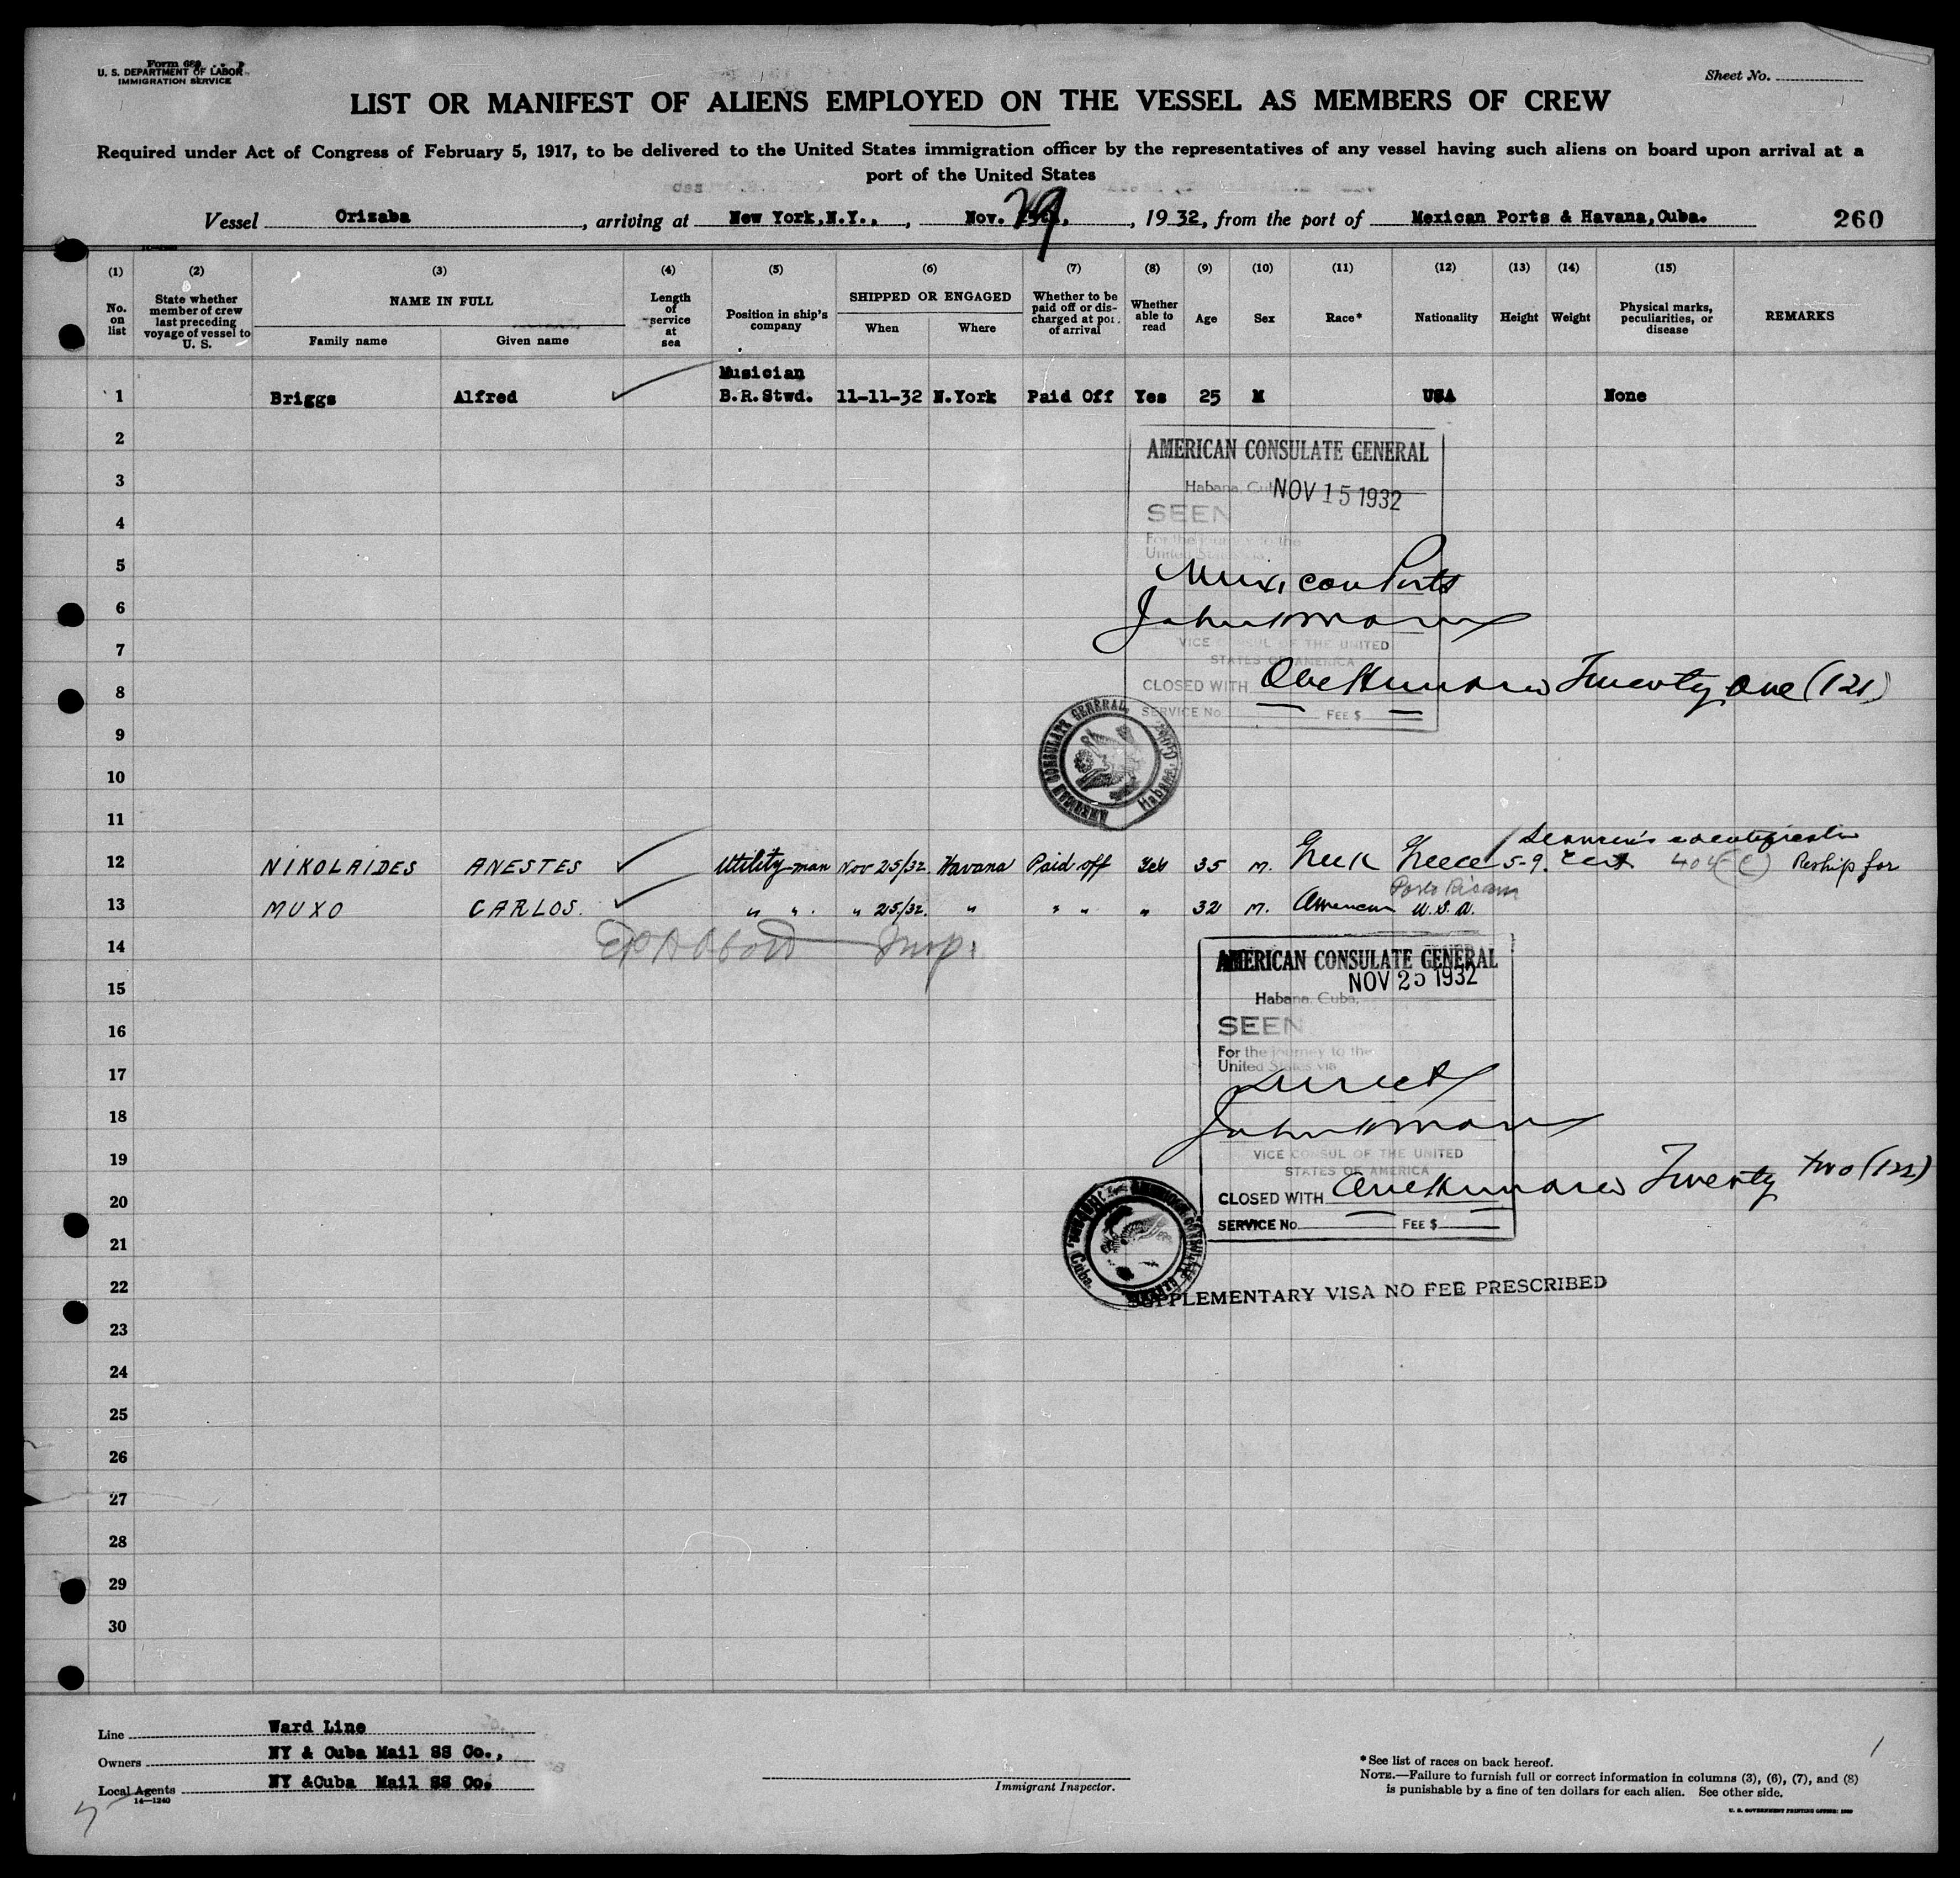 Form 689
U. S. DEPARTMENT OF LABOR
IMMIGRATION SERVICE
Sheet No.
LIST OR MANIFEST OF ALIENS EMPLOYED ON THE VESSEL AS MEMBERS OF CREW
Required under Act of Congress of February 5, 1917, to be delivered to the United States immigration officer by the representatives of any vessel having such aliens on board upon arrival at a
port of the United States
Vessel Orizaba, arriving at New York,N.Y., Nov. 29, 1932, from the port of Mexican Ports & Havana,Cuba. 260
(1) (2) (3) (4) (5) (6) (7) (8) (9) (10) (11) (12) (13) (14) (15)
No. on list
State whether member of crew last preceding voyage of vessel to U. S.
NAME IN FULL
Family name
Given name
Length of service at sea
Position in ship's company
SHIPPED OR ENGAGED
When
Where
Whether to be paid off or discharged at port of arrival
Whether able to read
Age
Sex
Race*
Nationality
Height
Weight
Physical marks, peculiarities, or disease
REMARKS
Musician
1 Briggs Alfred B.R.Stwd. 11-11-32 N.York Paid Off Yes 25 M USA None
2
AMERICAN CONSULATE GENERAL
3
Habana, Cuba NOV 15 1932
4
SEEN
For the journey to the
United States via
5
Mexican Ports
6
7
VICE CONSUL OF THE UNITED
STATES OF AMERICA
8
CLOSED WITH One Hundred Twenty One (121)
SERVICE No. FEE $
AMERICAN CONSULATE GENERAL Habana, Cuba
9
10
11
Seamen's identification
12 NIKOLAIDES ANESTES Utility man Nov 25/32 Havana Paid off Yes 35 M. Greek Greece 5-9. Cert 404(C) Reship for
Porto Rican
13 MUXO CARLOS. " " " 25/32. " " " " 32 M. American U.S.A.
14 Insp.
AMERICAN CONSULATE GENERAL
NOV 25 1932
15
Habana, Cuba,
16
SEEN
For the journey to the
United States via
17
Direct
18
19
VICE CONSUL OF THE UNITED
STATES OF AMERICA
20
CLOSED WITH One Hundred Twenty two (122)
SERVICE No. FEE $
21
22
SUPPLEMENTARY VISA NO FEE PRESCRIBED
23
24
25
26
27
28
29
30
Line Ward Line
Owners NY & Cuba Mail SS Co.,
Local Agents NY &Cuba Mail SS Co.
14—1240
Immigrant Inspector.
*See list of races on back hereof.
NOTE.—Failure to furnish full or correct information in columns (3), (6), (7), and (8)
is punishable by a fine of ten dollars for each alien. See other side.